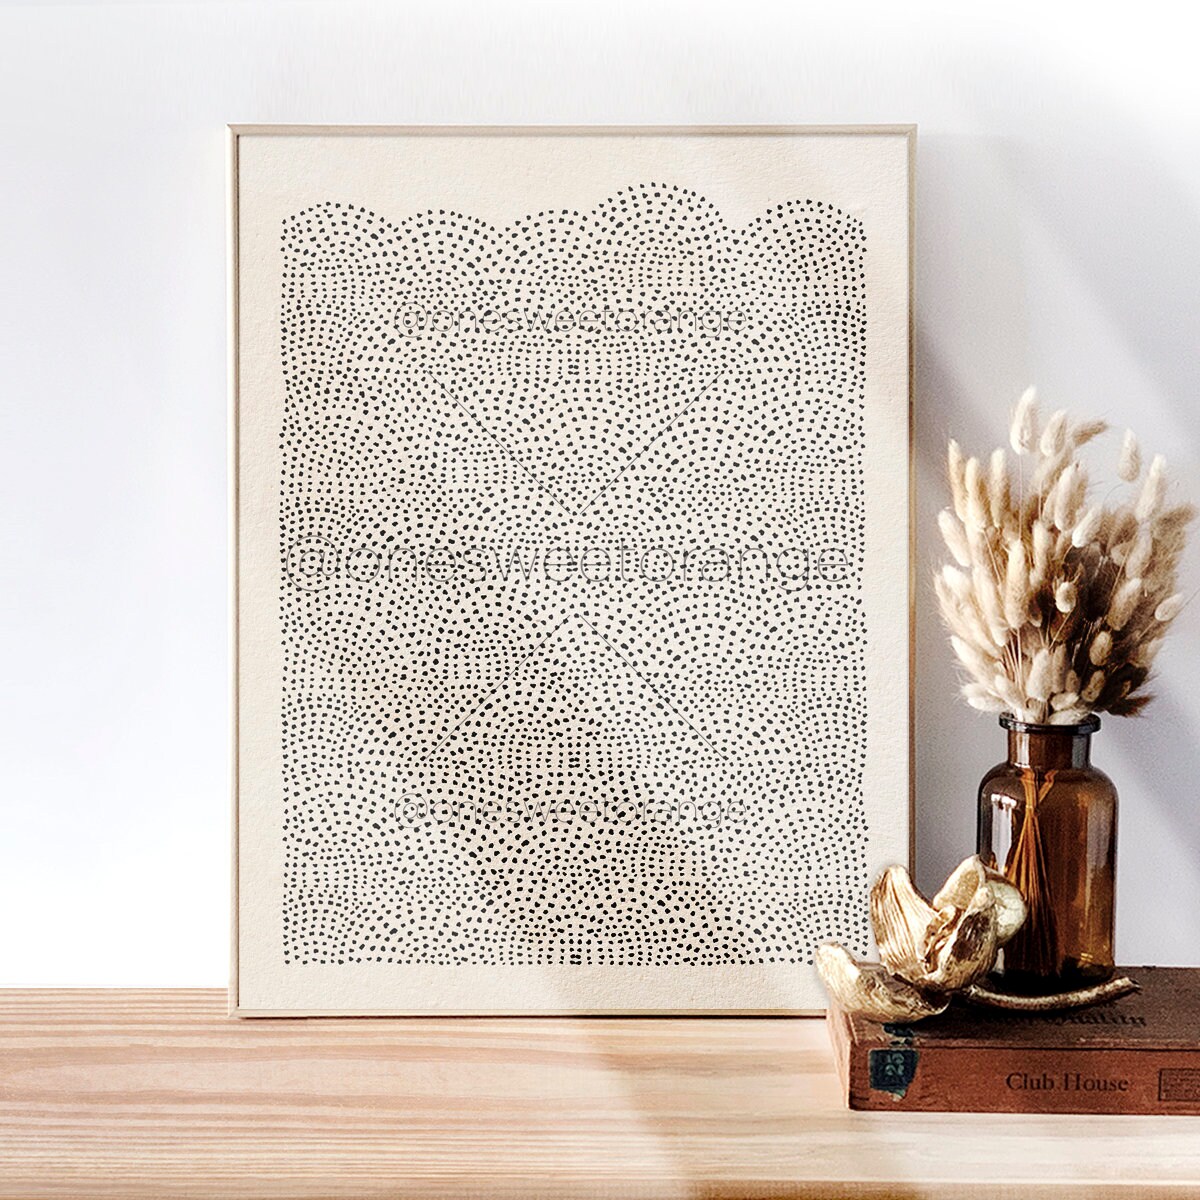 @onesweetorange
@onesweetorange
@onesweetorange
Quality
25
Club House